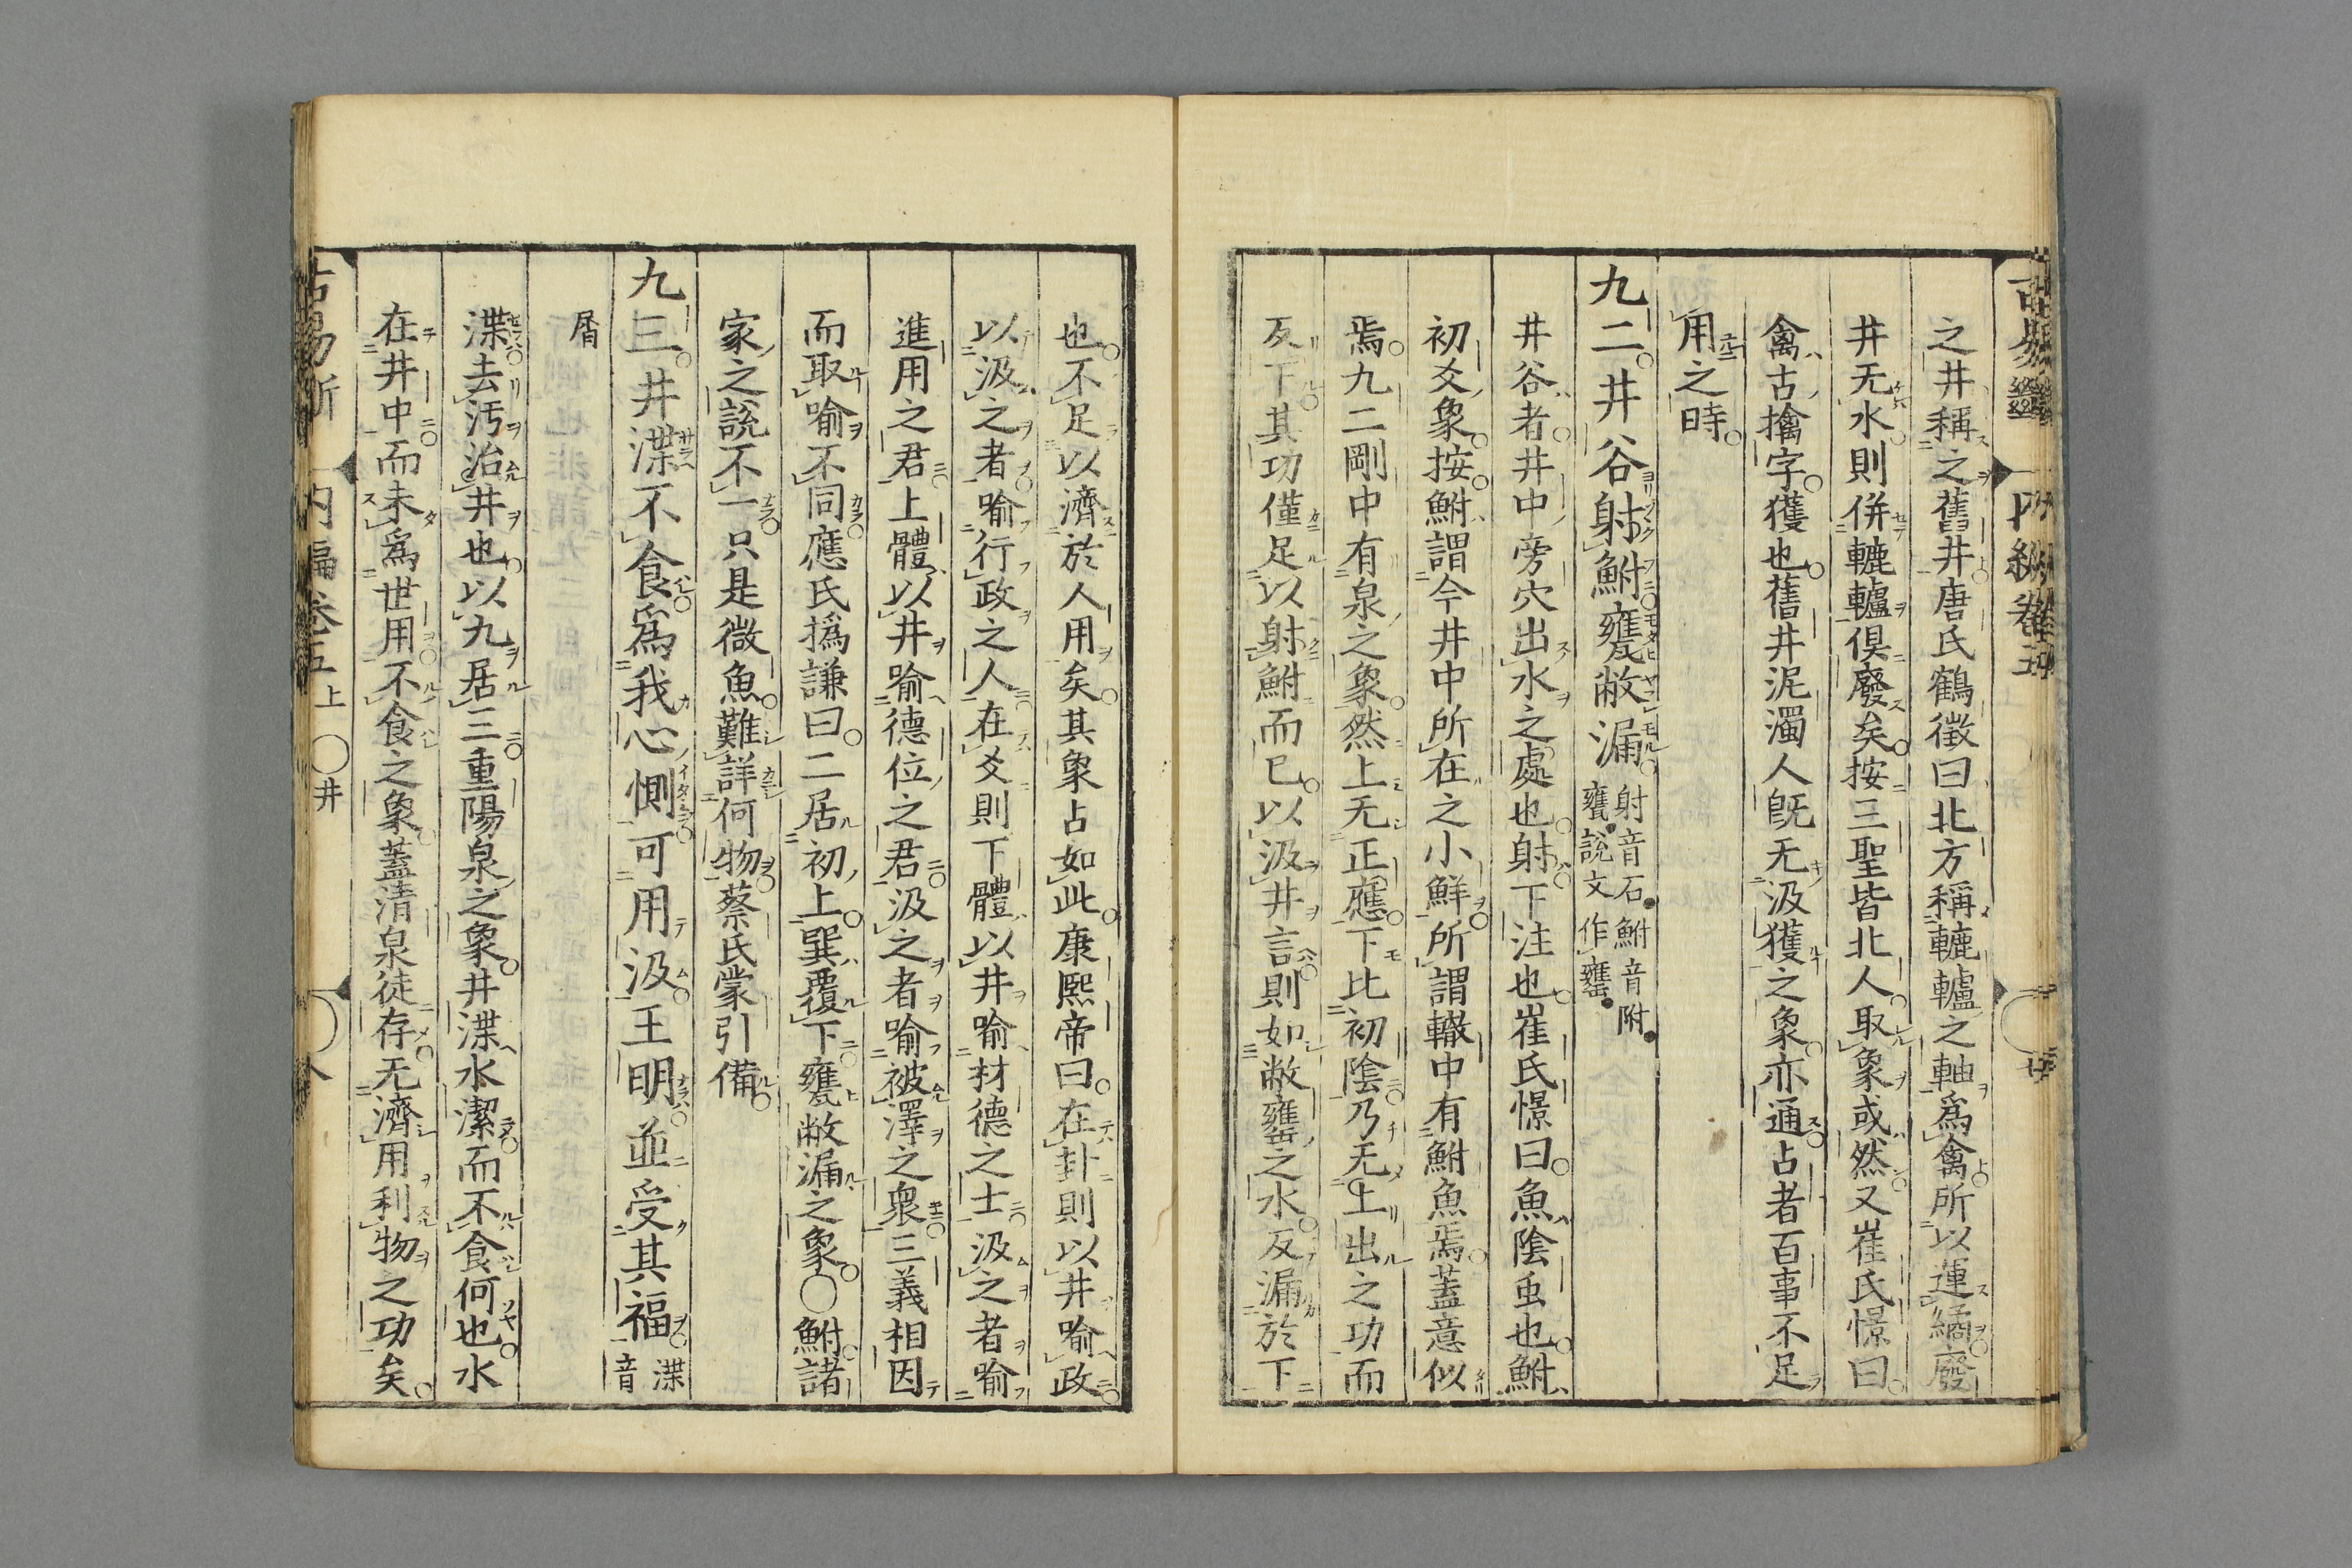 之井稱之舊井唐氏鶴徵曰北方稱轆轤之軸爲禽所以運繘廢
井无水則併轆轤俱廢矣按三聖皆北人取象或然又崔氏憬曰
禽古擒字獲也舊井泥濁人旣无汲獲之象亦通占者百事不足
用之時
九二井谷射鮒甕敝漏射音石鮒音附甕說文作罋
井谷者井中旁穴出水之處也射下注也崔氏憬曰魚陰虫也鮒
初爻象按鮒謂今井中所在之小鮮所謂轍中有鮒魚焉蓋意似
焉九二剛中有泉之象然上无正應下比初陰乃无上出之功而
反下其功僅足以射鮒而已以汲井言則如敝罋之水反漏於下
也不足以濟於人用矣其象占如此康熙帝曰在卦則以井喻政
以汲之者喻行政之人在爻則下體以井喻材德之士汲之者喻
進用之君上體以井喻德位之君汲之者喻被澤之衆三義相因
而取喻不同應氏撝謙曰二居初上巽覆下甕敝漏之象○鮒諸
家之說不一只是微魚難詳何物蔡氏蒙引備
九三井渫不食爲我心惻可用汲王明並受其福渫音
屑
渫去汚治井也以九居三重陽泉之象井渫水潔而不食何也水
在井中而未爲世用不食之象蓋清泉徒存无濟用利物之功矣
内篇卷五上　○井